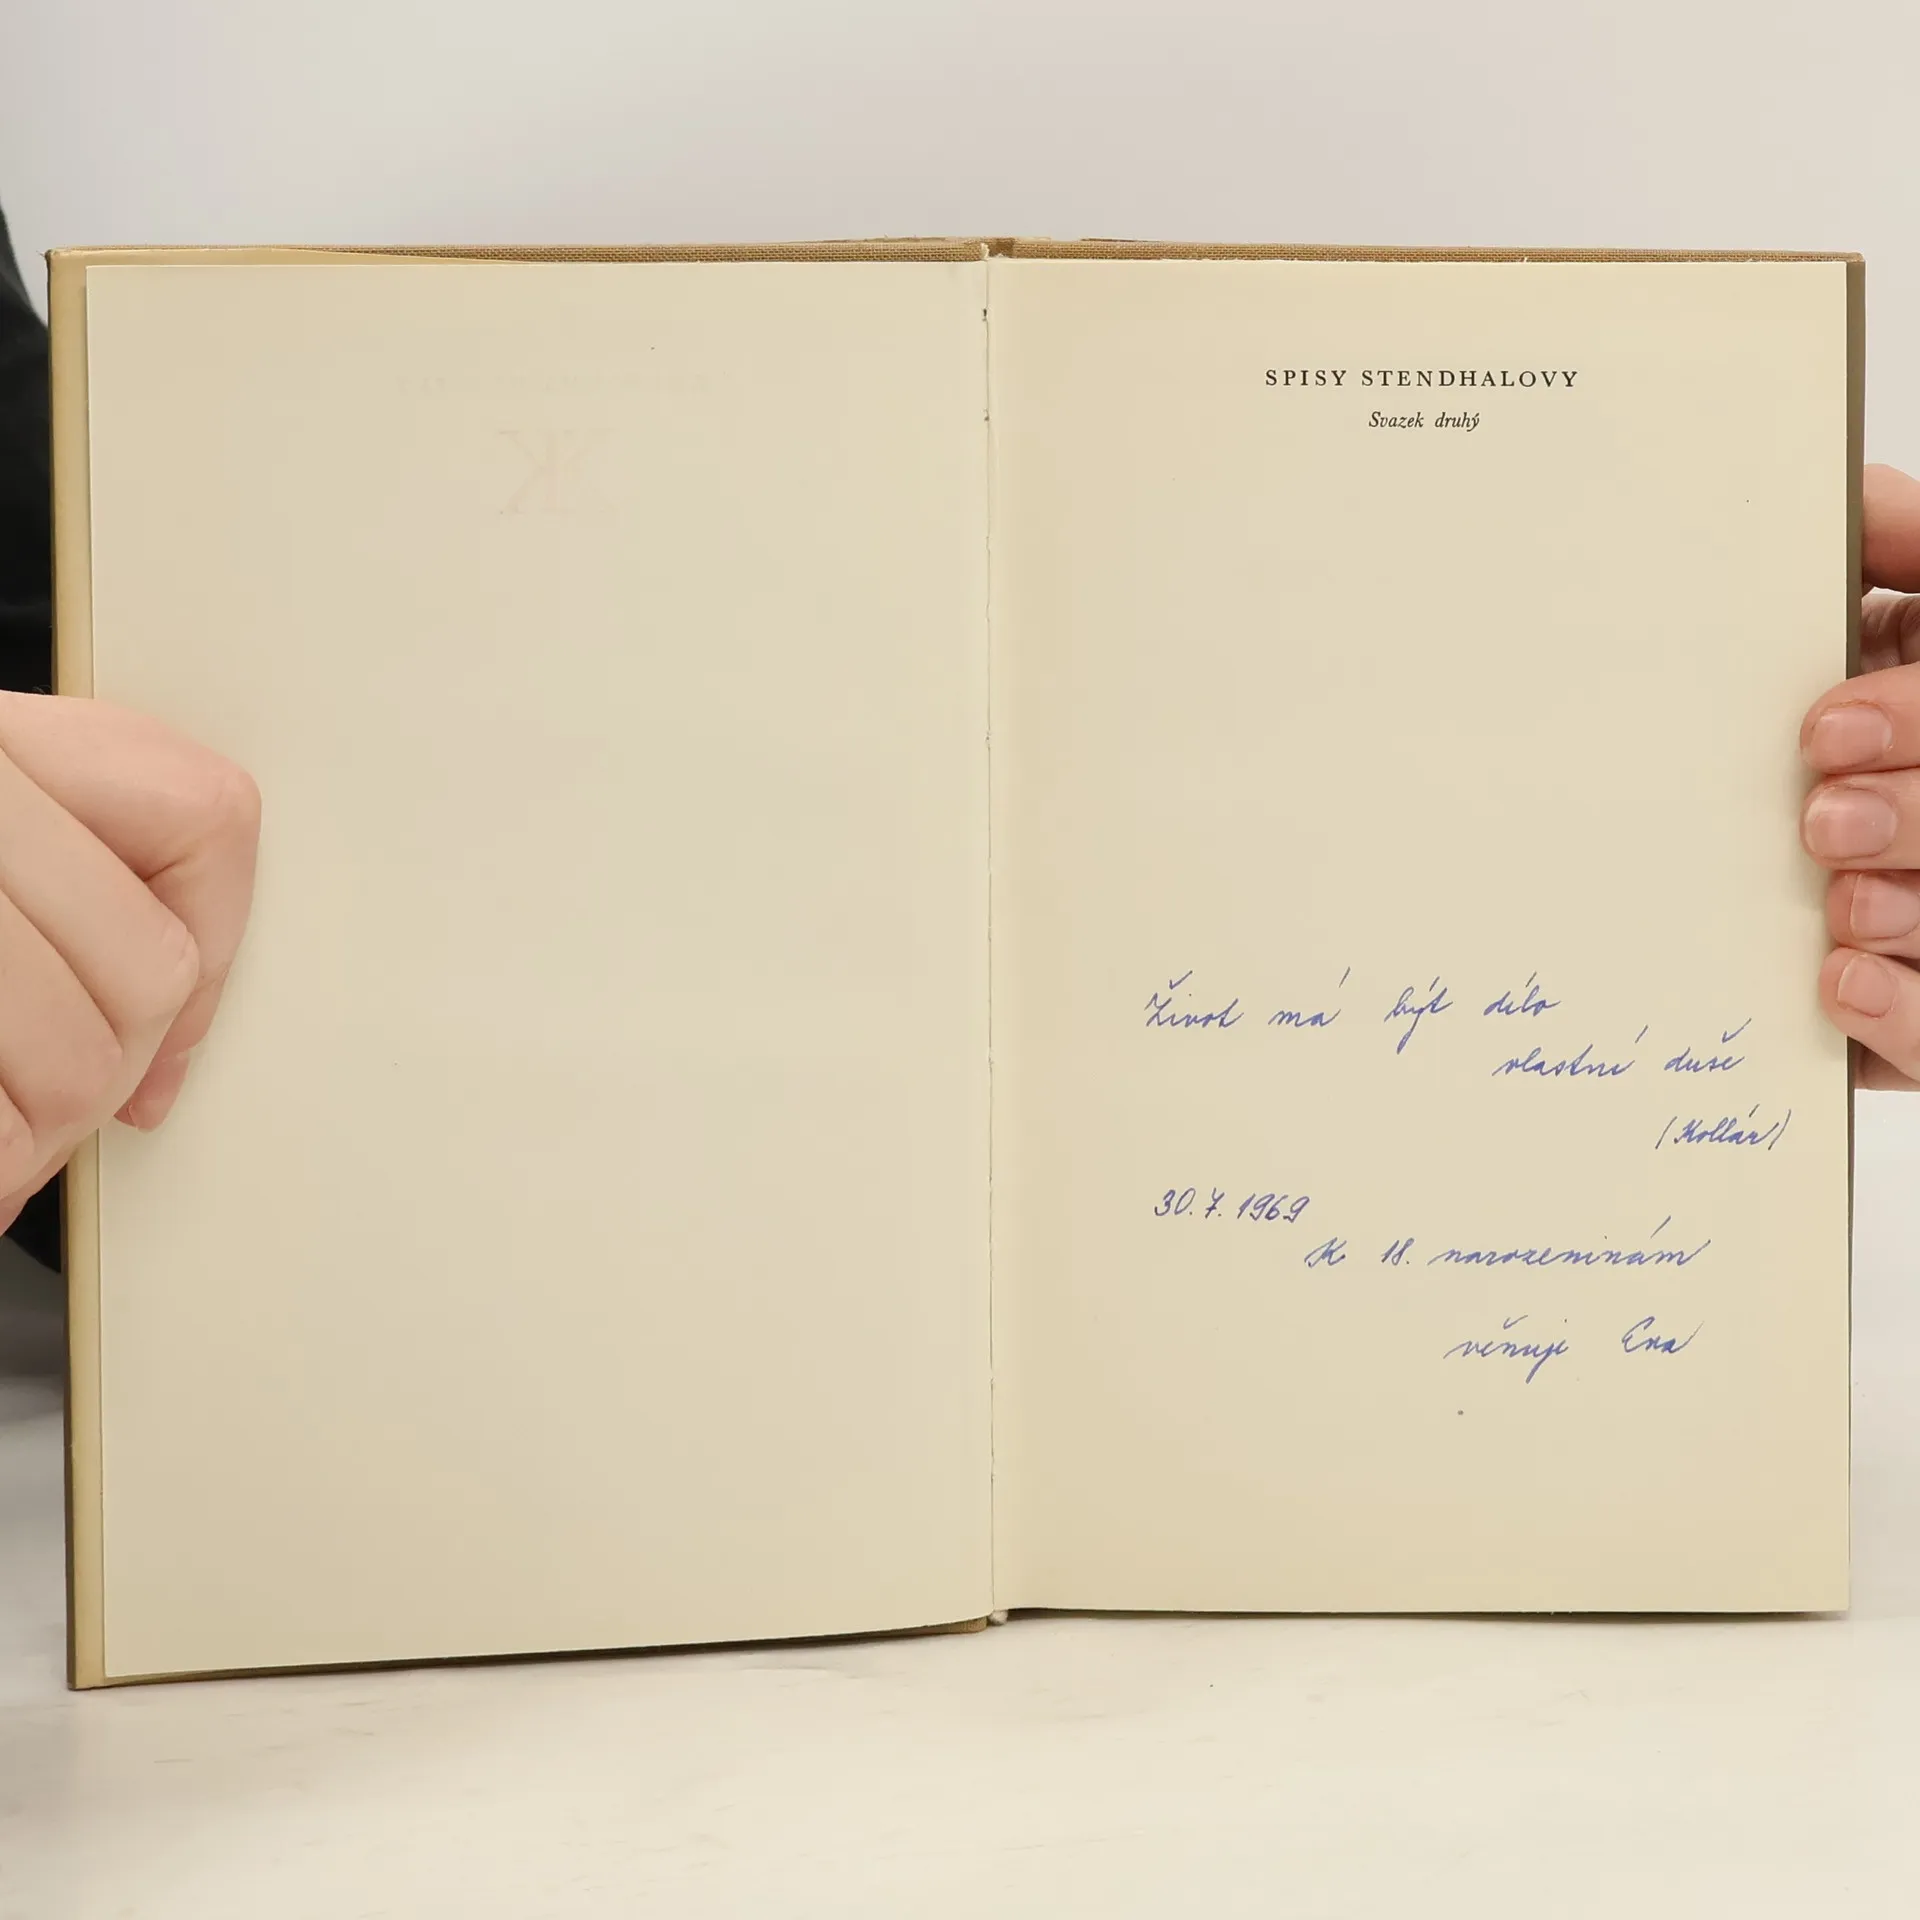 SPISY STENDHALOVY
Svazek druhý
Život má být dílo
vlastní duše
(Kollár)
30. 7. 1969
K 18. narozeninám
věnuje Eva